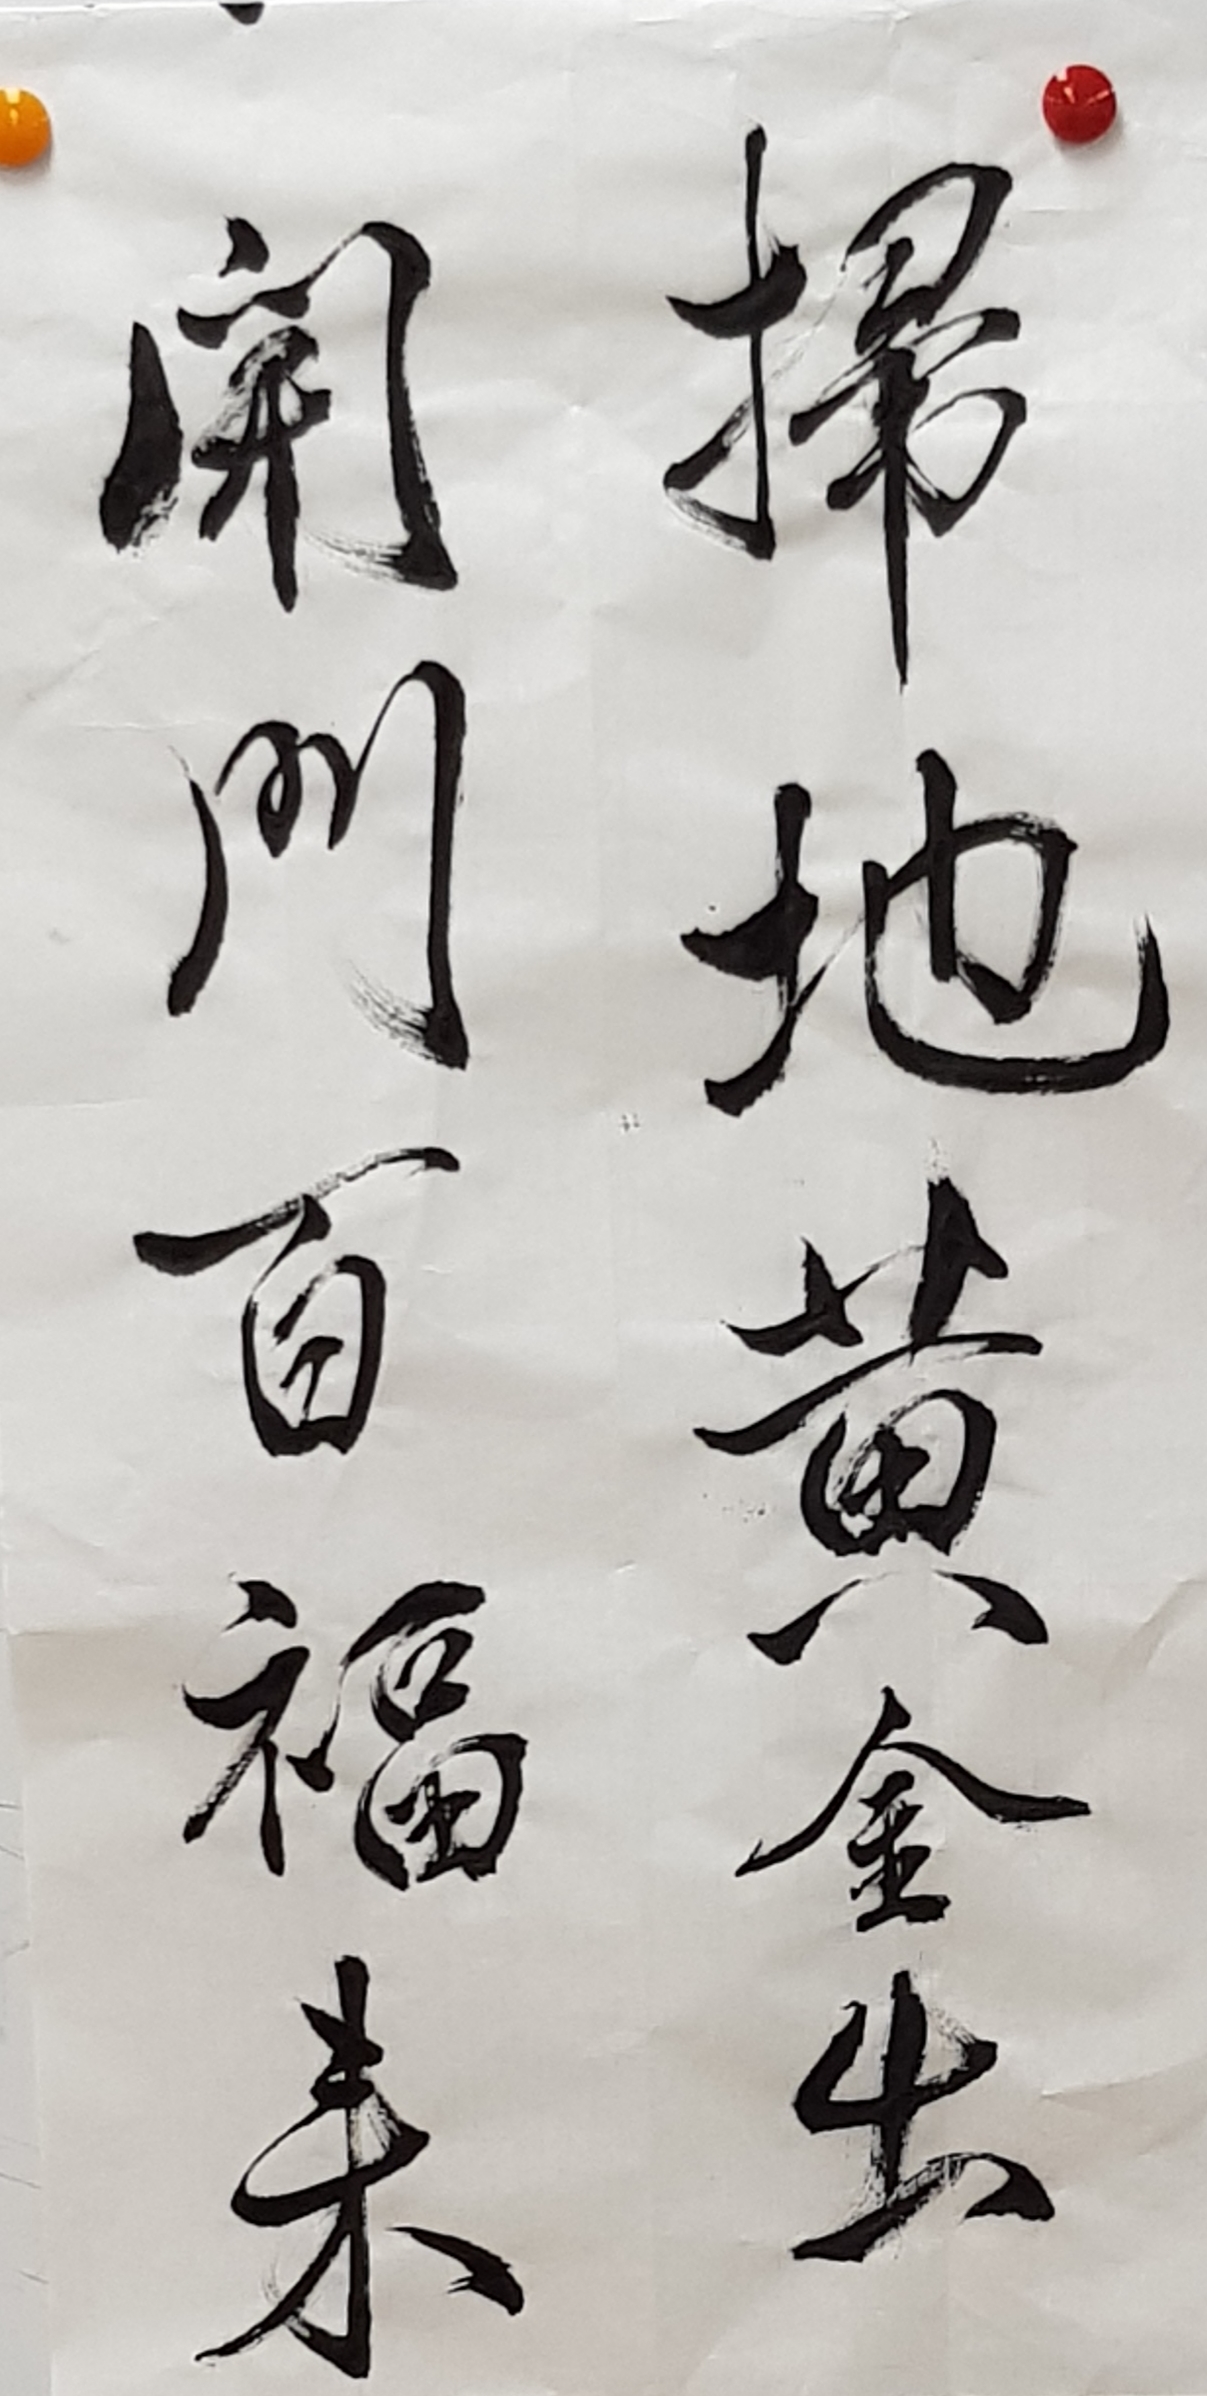 掃地黄金出
開門百福来